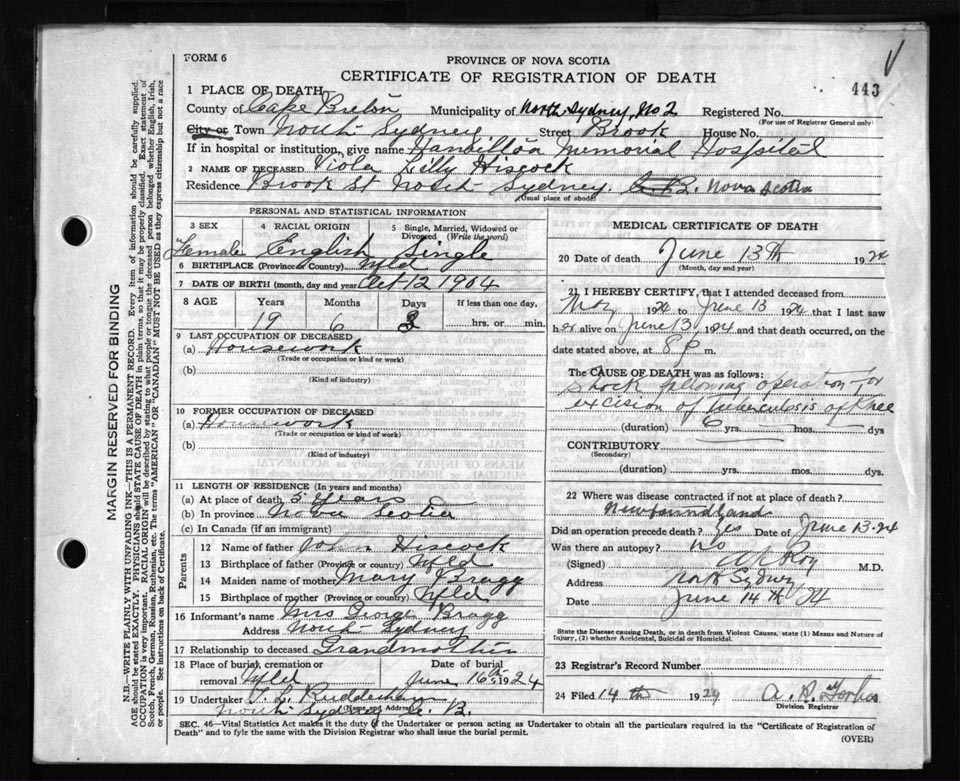 FORM 6
PROVINCE OF NOVA SCOTIA
CERTIFICATE OF REGISTRATION OF DEATH
443
1 PLACE OF DEATH
County of Cape Breton Municipality of North Sydney, No 2 Registered No.
(For use of Registrar General only)
City or Town North Sydney Street Brook House No.
If in hospital or institution, give name Hamilton Memorial Hospital
2 NAME OF DECEASED Viola Lilly Hiscock
Residence Brook St North Sydney. C.B. Nova Scotia
(Usual place of abode)
PERSONAL AND STATISTICAL INFORMATION
3 SEX 4 RACIAL ORIGIN 5 Single, Married, Widowed or Divorced (Write the word)
Female English Single
6 BIRTHPLACE (Province or Country) Nfld
7 DATE OF BIRTH (month, day and year) Oct 12 1904
8 AGE Years Months Days If less than one day,
19 6 hrs. or min.
9 LAST OCCUPATION OF DECEASED
(a) Housework
(Trade or occupation or kind of work)
(b)
(Kind of industry)
10 FORMER OCCUPATION OF DECEASED
(a) Housework
(Trade or occupation or kind of work)
(b)
(Kind of industry)
11 LENGTH OF RESIDENCE (In years and months)
(a) At place of death 5 years
(b) In province Nova Scotia
(c) In Canada (if an immigrant)
Parents
12 Name of father John Hiscock
13 Birthplace of father (Province or country) Nfld
14 Maiden name of mother Mary J Bragg
15 Birthplace of mother (Province or country) Nfld
16 Informant's name Mrs George Bragg
Address North Sydney
17 Relationship to deceased Grandmother
18 Place of burial, cremation or removal Nfld Date of burial June 16th 1924
19 Undertaker
North Sydney C. B.
MEDICAL CERTIFICATE OF DEATH
20 Date of death June 13th 1924
(Month, day and year)
21 I HEREBY CERTIFY, that I attended deceased from
1924 to June 13 1924 that I last saw
her alive on June 13 1924 and that death occurred, on the
date stated above, at 8 P m.
The CAUSE OF DEATH was as follows:
Shock following operation for
excision of Tuberculosis of Knee
(duration) 6 yrs. mos. dys
CONTRIBUTORY
(Secondary)
(duration) yrs. mos. dys.
22 Where was disease contracted if not at place of death?
Newfoundland
Did an operation precede death? Yes Date of June 13-24
Was there an autopsy? No
(Signed) Roy M.D.
Address North Sydney
Date June 14th 24
State the Disease causing Death, or in death from Violent Causes, state (1) Means and Nature of
Injury, (2) whether Accidental, Suicidal or Homicidal.
23 Registrar's Record Number
24 Filed 14th 1924 A. R. Forbes
Division Registrar
SEC. 46—Vital Statistics Act makes it the duty of the Undertaker or person acting as Undertaker to obtain all the particulars required in the "Certificate of Registration of
Death" and to fyle the same with the Division Registrar who shall issue the burial permit.
(OVER)
MARGIN RESERVED FOR BINDING
N.B.—WRITE PLAINLY WITH UNFADING INK—THIS IS A PERMANENT RECORD. Every item of information should be carefully supplied.
AGE should be stated EXACTLY. PHYSICIANS should STATE CAUSE OF DEATH in plain terms, so that it may be properly classified. Exact statement of
OCCUPATION is very important. RACIAL ORIGIN will be described by stating to what people or tongue the deceased person belonged whether English, Irish,
Scotch, French, German, Russian, Ruthenian, etc. The terms "AMERICAN" or "CANADIAN" MUST NOT BE USED as they express citizenship but not a race
or people. See instructions on back of Certificate.